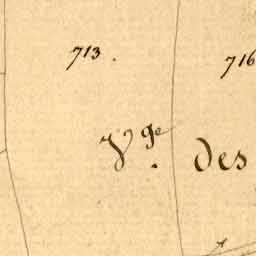 713.
716
Vge. des